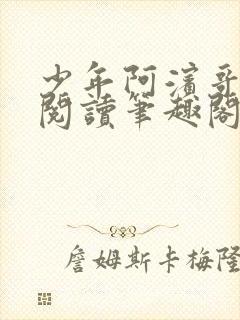 少年阿濱哥
閱讀筆趣閣
詹姆斯卡梅隆